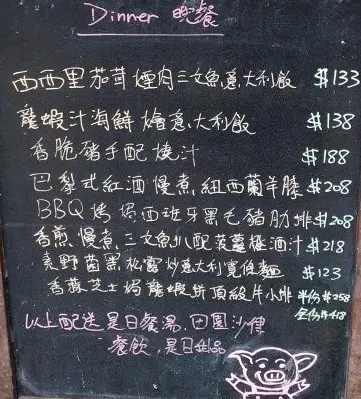 Dinner 晚餐
西西里茄茸煙肉三文魚意大利飯 $133
龍蝦汁海鮮燴意大利飯 $138
香脆豬手配燒汁 $188
巴黎式紅酒慢煮紐西蘭羊膝 $208
BBQ 烤焗西班牙黑毛豬肋排 $208
香煎慢煮三文魚扒配菠蘿梅酒汁 $218
素野茵黑松露炒意大利寬條麵 $123
香蒜芝士焗龍蝦拼頂級牛小排 半份$258
全份$418
以上配送是日餐湯、田園沙律
餐飲、是日甜品